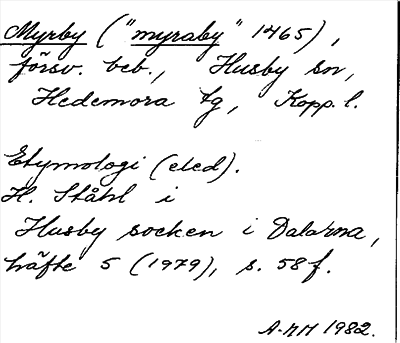 Myrby ("myraby" 1465),
försv. beb., Husby sn,
Hedemora tg, Kopp. l.
Etymologi (eled).
H. Ståhl i
Husby socken i Dalarna,
häfte 5 (1979), s. 58 f.
A-MH 1982.